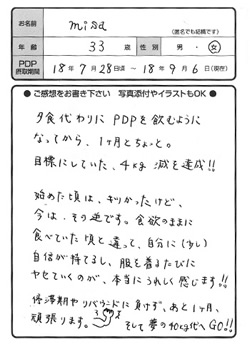 お名前 misa (匿名でも結構です)
年齢 33 歳 性別 男・女
PDP摂取期間 18年7月28日頃〜18年9月6日(現在)
●ご感想をお書き下さい 写真添付やイラストもOK●
夕食代わりにPDPを飲むように
なってから、1ヶ月とちょっと。
目標にしていた、4kg減を達成!!
始めた頃は、辛かったけど、
今は、その逆です。食欲のままに
食べていた頃と違って、自分に(少し)
自信が持てるし、服を着るたびに
ヤセていくのが、本当にうれしく感じます!!
停滞期やリバウンドに負けず、あと1ヶ月、
頑張ります。
そして夢の40kg代へGO!!